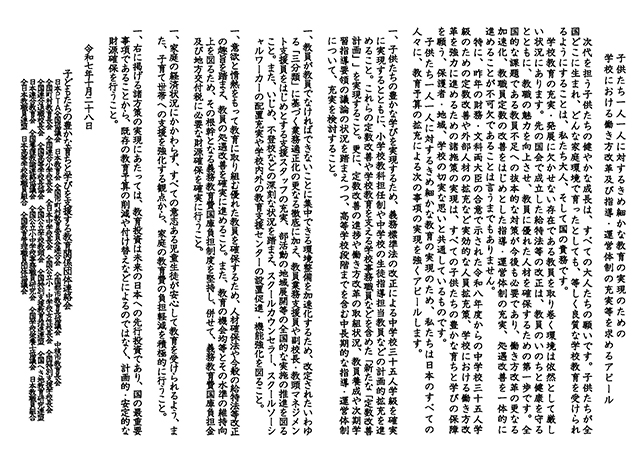 子供たち一人一人に対するきめ細かな教育の実現のための
学校における働き方改革及び指導・運営体制の充実等を求めるアピール
次代を担う子供たちの健やかな成長は、すべての大人たちの願いです。子供たちが全
国どこに生まれ、どんな家庭環境で育ったとしても、等しく良質な学校教育を受けられ
るようにすることは、私たち大人、そして国の責務です。
学校教育の充実・発展に欠かせない存在である教員を取り巻く環境は依然として厳し
い状況にあります。先の国会で成立した給特法等の改正は、教員のいのちと健康を守る
とともに、教職の魅力を向上させ、教員に優れた人材を確保するための第一歩です。全
国的な課題である教員不足への抜本的な対策が今後も必要であり、働き方改革の更なる
加速化、教職員定数の改善をはじめとした指導・運営体制の充実、処遇改善を一体的に
進めることが不可欠であることは言うまでもありません。
特に、昨年の財務・文科両大臣の合意で示された令和八年度からの中学校三十五人学
級のための定数改善や外部人材の拡充など実効的な人員拡充策、学校における働き方改
革を強力に進めるための諸施策の実現は、すべての子供たちの豊かな育ちと学びの保障
を願う、保護者・地域、学校の切実な思いと共通しているものです。
子供たち一人一人に対するきめ細かな教育の実現のため、私たちは日本のすべての
人々に、教育予算の拡充による次の事項の実現を強くアピールします。
一、子供たちの豊かな学びを実現するため、義務標準法の改正による中学校三十五人学級を確実
に実現するとともに、小学校教科担任制や中学校の生徒指導担当教員などの計画的拡充を進
めること。これらの定数改善や学校教育を支える学校事務職員などを含めた「新たな『定数改善
計画』」を実現すること。更に、定数改善の進捗や働き方改革の取組状況、教員養成や次期学
習指導要領の議論の状況を踏まえつつ、高等学校段階までを含む中長期的な指導・運営体制
について、充実を検討すること。
一、教員が教員でなければできないことに集中できる環境整備を加速化するため、改定されたいわゆ
る「三分類」に基づく業務適正化の更なる徹底に加え、教員業務支援員や副校長・教頭マネジメン
ト支援員をはじめとする支援スタッフの充実、部活動の地域展開等の全国的な実施の推進を図る
こと。また、いじめ、不登校などの深刻な状況を踏まえ、スクールカウンセラー、スクールソーシ
ャルワーカーの配置充実や学校内外の教育支援センターの設置促進・機能強化を図ること。
一、意欲と情熱をもって教育に取り組む優れた教員を確保するため、人材確保法や今般の給特法等改正
の趣旨を踏まえ、教員の処遇改善を確実に進めること。また、教育の機会均等とその水準の維持向
上を図るため、その根幹となる義務教育費国庫負担制度を堅持し、併せて、義務教育費国庫負担金
及び地方交付税に必要な財源確保を確実に行うこと。
一、家庭の経済状況にかかわらず、すべての意志ある児童生徒が安心して教育を受けられるよう、ま
た、子育て世帯への支援を強化する観点から、家庭の教育費の負担軽減を積極的に行うこと。
一、右に掲げる諸方策の実現にあたっては、教育投資は未来の日本への先行投資であり、国の最重要
事項であることから、既存の教育予算の削減や付け替えなどによるのではなく、計画的・安定的な
財源確保を行うこと。
令和七年十月二十八日
子どもたちの豊かな育ちと学びを支援する教育関係団体連絡会